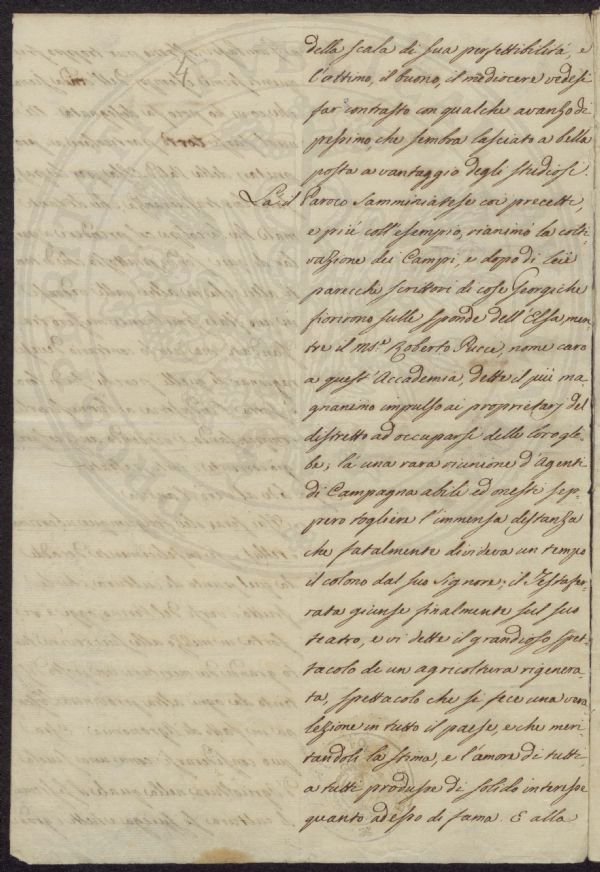 4
della scala di sua perfettibilità, e
l'ottimo, il buono, il mediocre vedesi
far contrasto con qualche avanzo di
pessimo, che sembra lasciato a bella
posta a vantaggio degli studiosi.
La il Paroco Samminiatese coi precetti,
e più coll'esempio, rianimò la colti-
vazione dei Campi, e dopo di lui
parecchi scrittori di cose Georgiche
fiorirono sulle sponde dell'Elsa, men
tre il M.se Roberto Pucci, nome caro
a quest'Accademia, dette il più ma
gnanimo impulso ai proprietarj del
distretto ad occuparsi delle loro gle
be; là una rara riunione d'Agenti
di Campagna abili ed onesti sep-
pero togliere l'immensa distanza
che fatalmente divideva un tempo
il colono dal suo Signore; il Testafer
rata giunse finalmente sul suo
teatro, e vi dette il grandioso spet-
tacolo di un agricoltura rigenera
ta, spettacolo che si fece una vera
lezione in tutto il paese, e che meri
tandoli la stima, e l'amore di tutti
a tutti produsse di solido interesse
quanto ad esso di fama. E alla